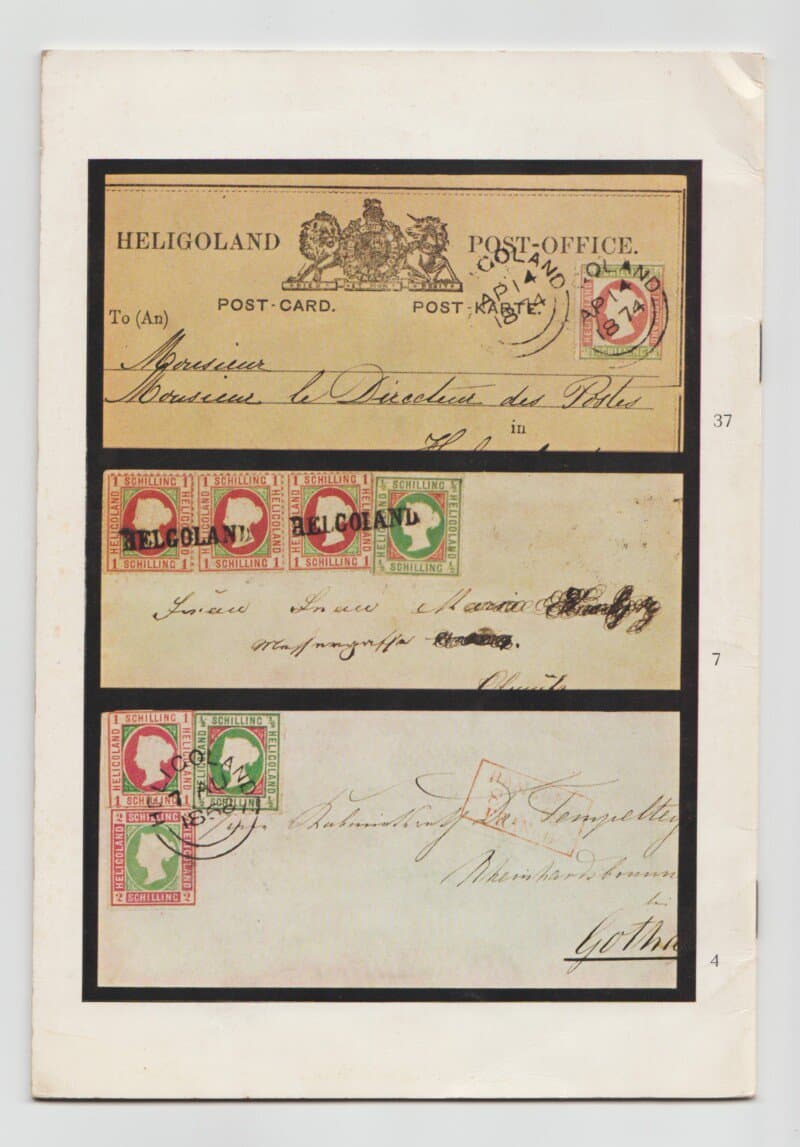 HELIGOLAND POST-OFFICE.
POST-CARD. POST-KARTE.
GOLAND
AP 14
1874
OLAND
AP 14
1874
To (An)
Monsieur
Monsieur le Directeur des Postes
in
37
1 SCHILLING 1
HELIGOLAND
1 SCHILLING 1
1 SCHILLING 1
HELIGOLAND
1 SCHILLING 1
1 SCHILLING 1
HELIGOLAND
1 SCHILLING 1
½ SCHILLING ½
HELIGOLAND
½ SCHILLING ½
HELGOLAND
HELGOLAND
Frau Frau Maria
Messergasse
Olmütz
7
1 SCHILLING 1
HELIGOLAND
1 SCHILLING 1
½ SCHILLING ½
HELIGOLAND
½ SCHILLING ½
HELIGOLAND
2 SCHILLING 2
HELIGOLAND
2 SCHILLING 2
Dr. Tempeltey
Rheinhardsbrunn
bei
Gotha
4